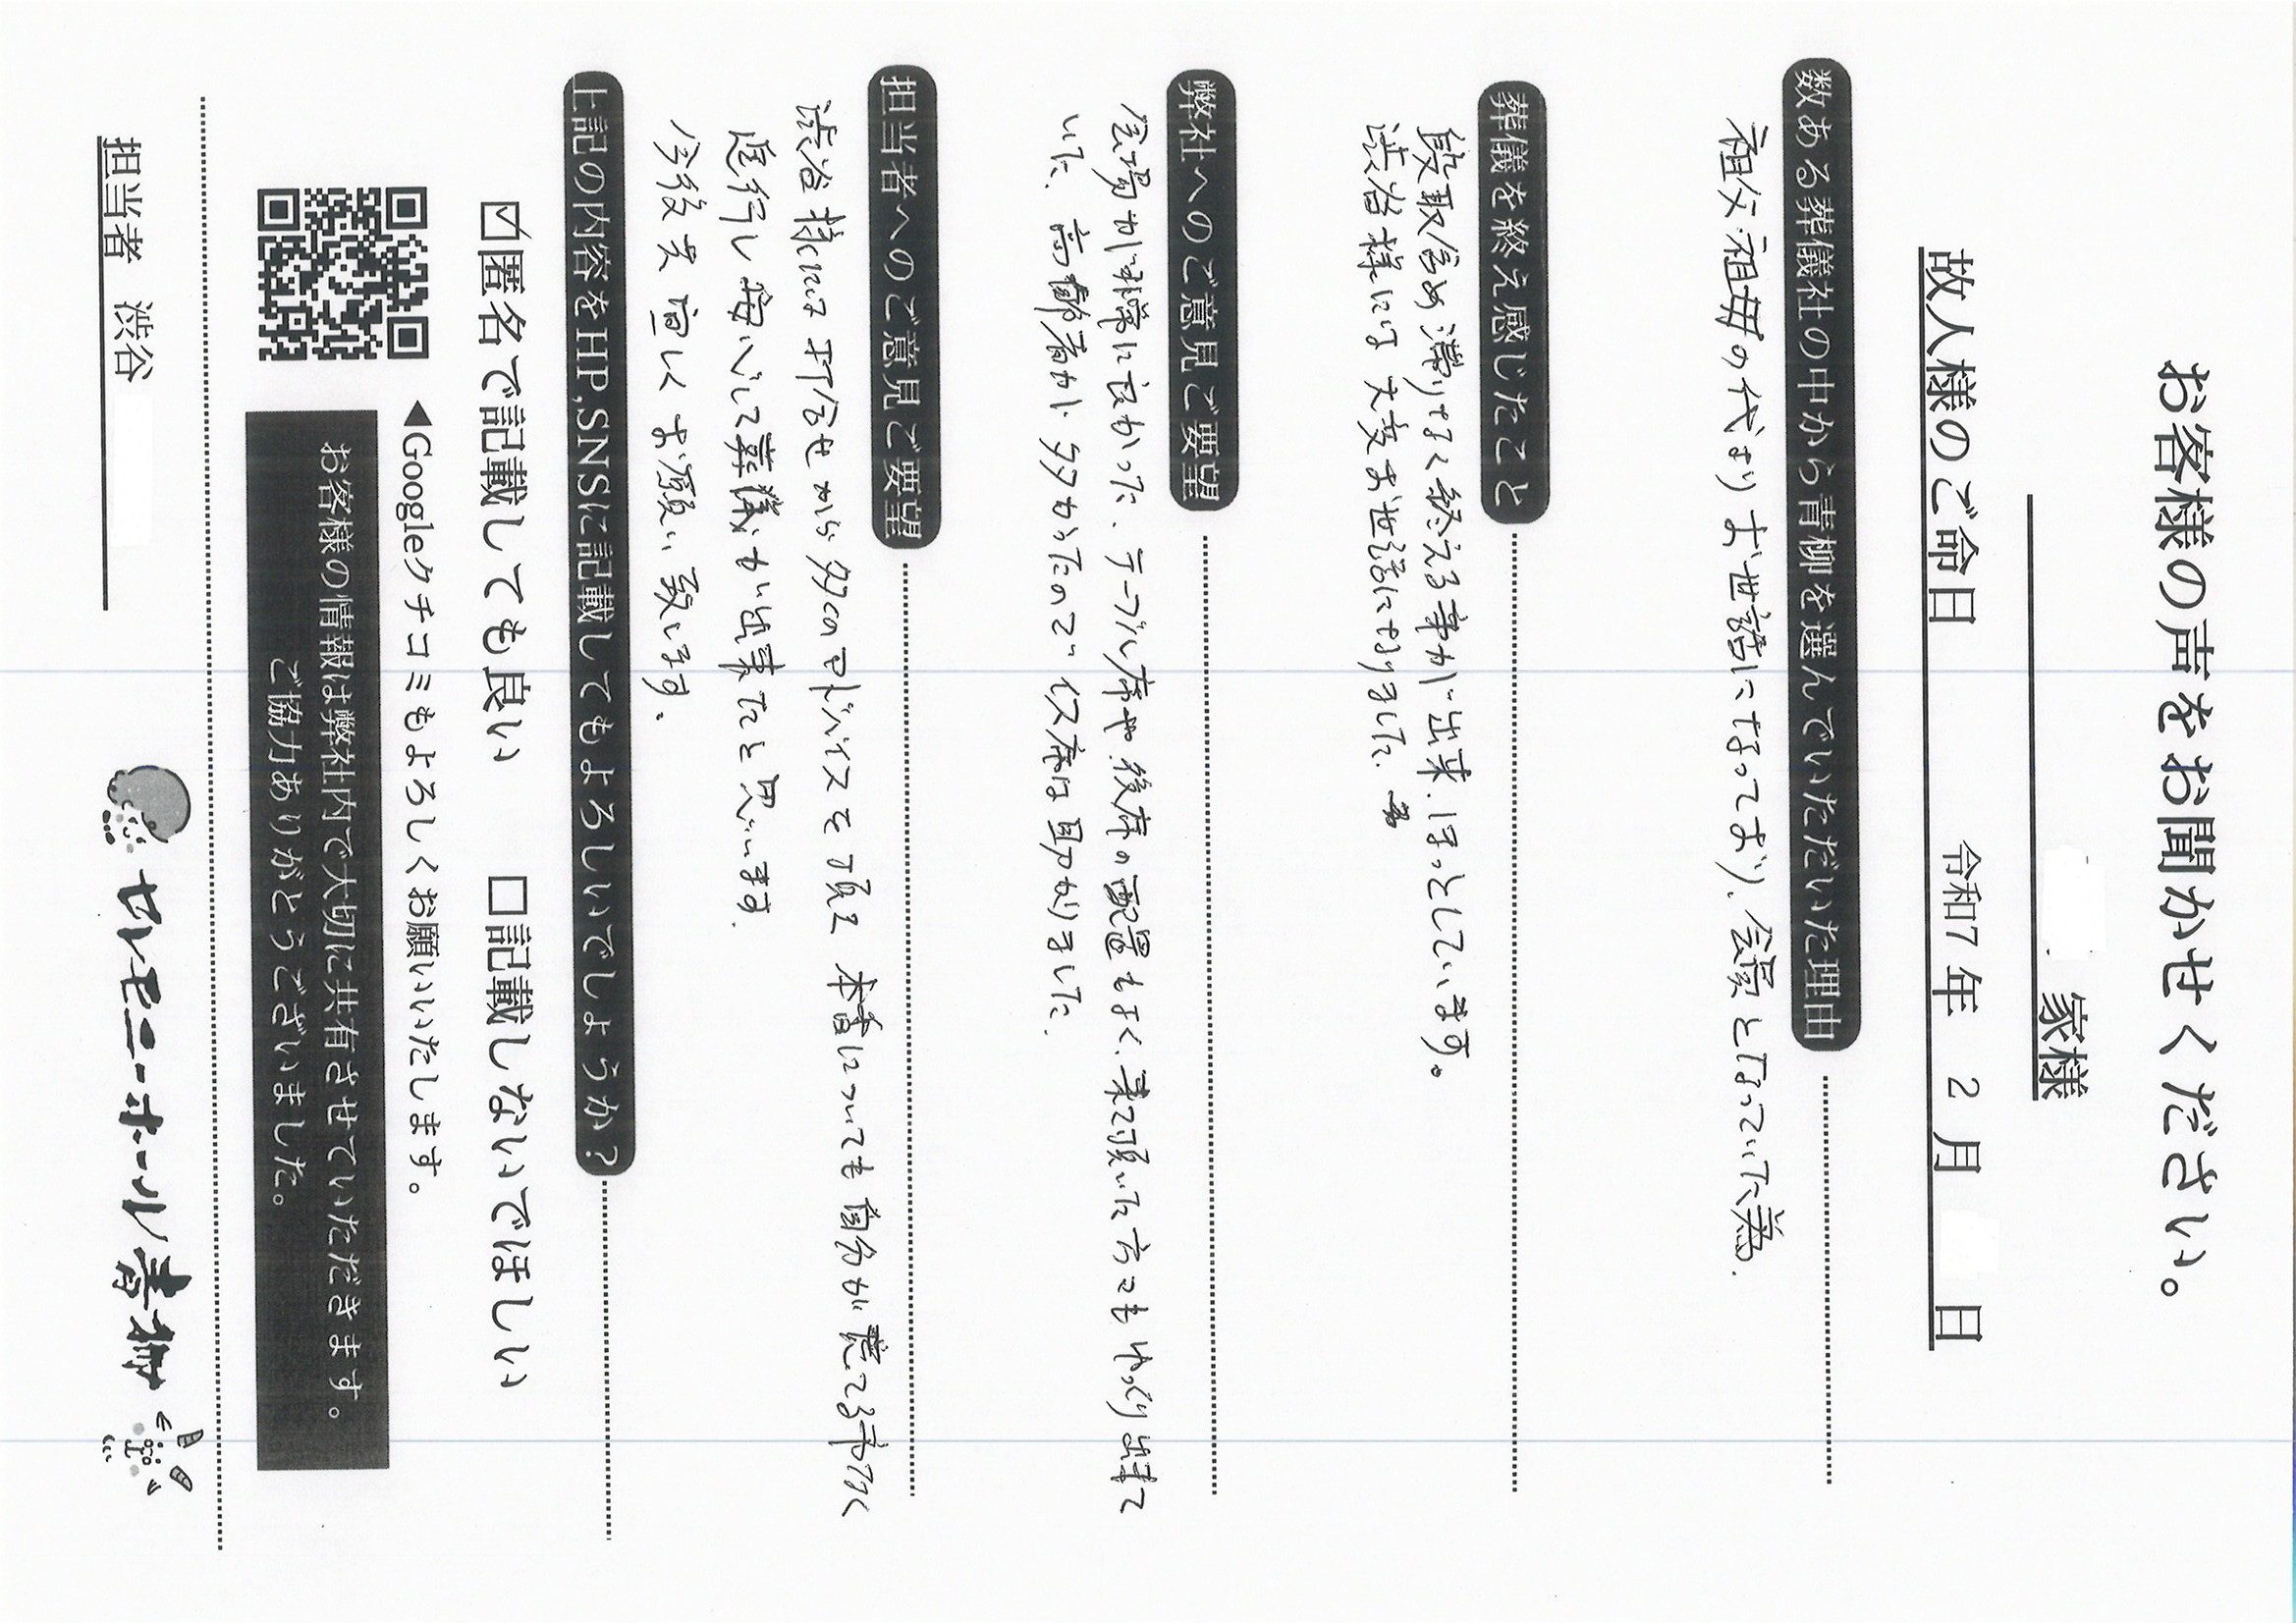 お客様の声をお聞かせください。
家様
故人様のご命日 令和7年 2月 日
数ある葬儀社の中から青柳を選んでいただいた理由
祖父・祖母の代より お世話になっており、会員となっていた為.
葬儀を終え感じたこと
段取含め滞りなく終える事が出来、ほっとしています。
渋谷様には大変お世話になりました.
弊社へのご意見ご要望
会場が非常に良かった、テーブル席や後席の配置もよく、来て頂いた方でもゆっくり出来て
いた. 高齢者が多かったので イス席は助かりました.
担当者へのご意見ご要望
渋谷様には打合せから多くのアドバイスを頂き 本番についても自分が慌てる事なく
進行し安心して葬儀が出来たと思います.
今後共宜しくお願い致します。
上記の内容をHP,SNSに記載してもよろしいでしょうか?
☑匿名で記載しても良い □記載しないでほしい
◀Googleクチコミもよろしくお願いいたします。
お客様の情報は弊社内で大切に共有させていただきます。
ご協力ありがとうございました。
担当者 渋谷
セレモニーホール青柳